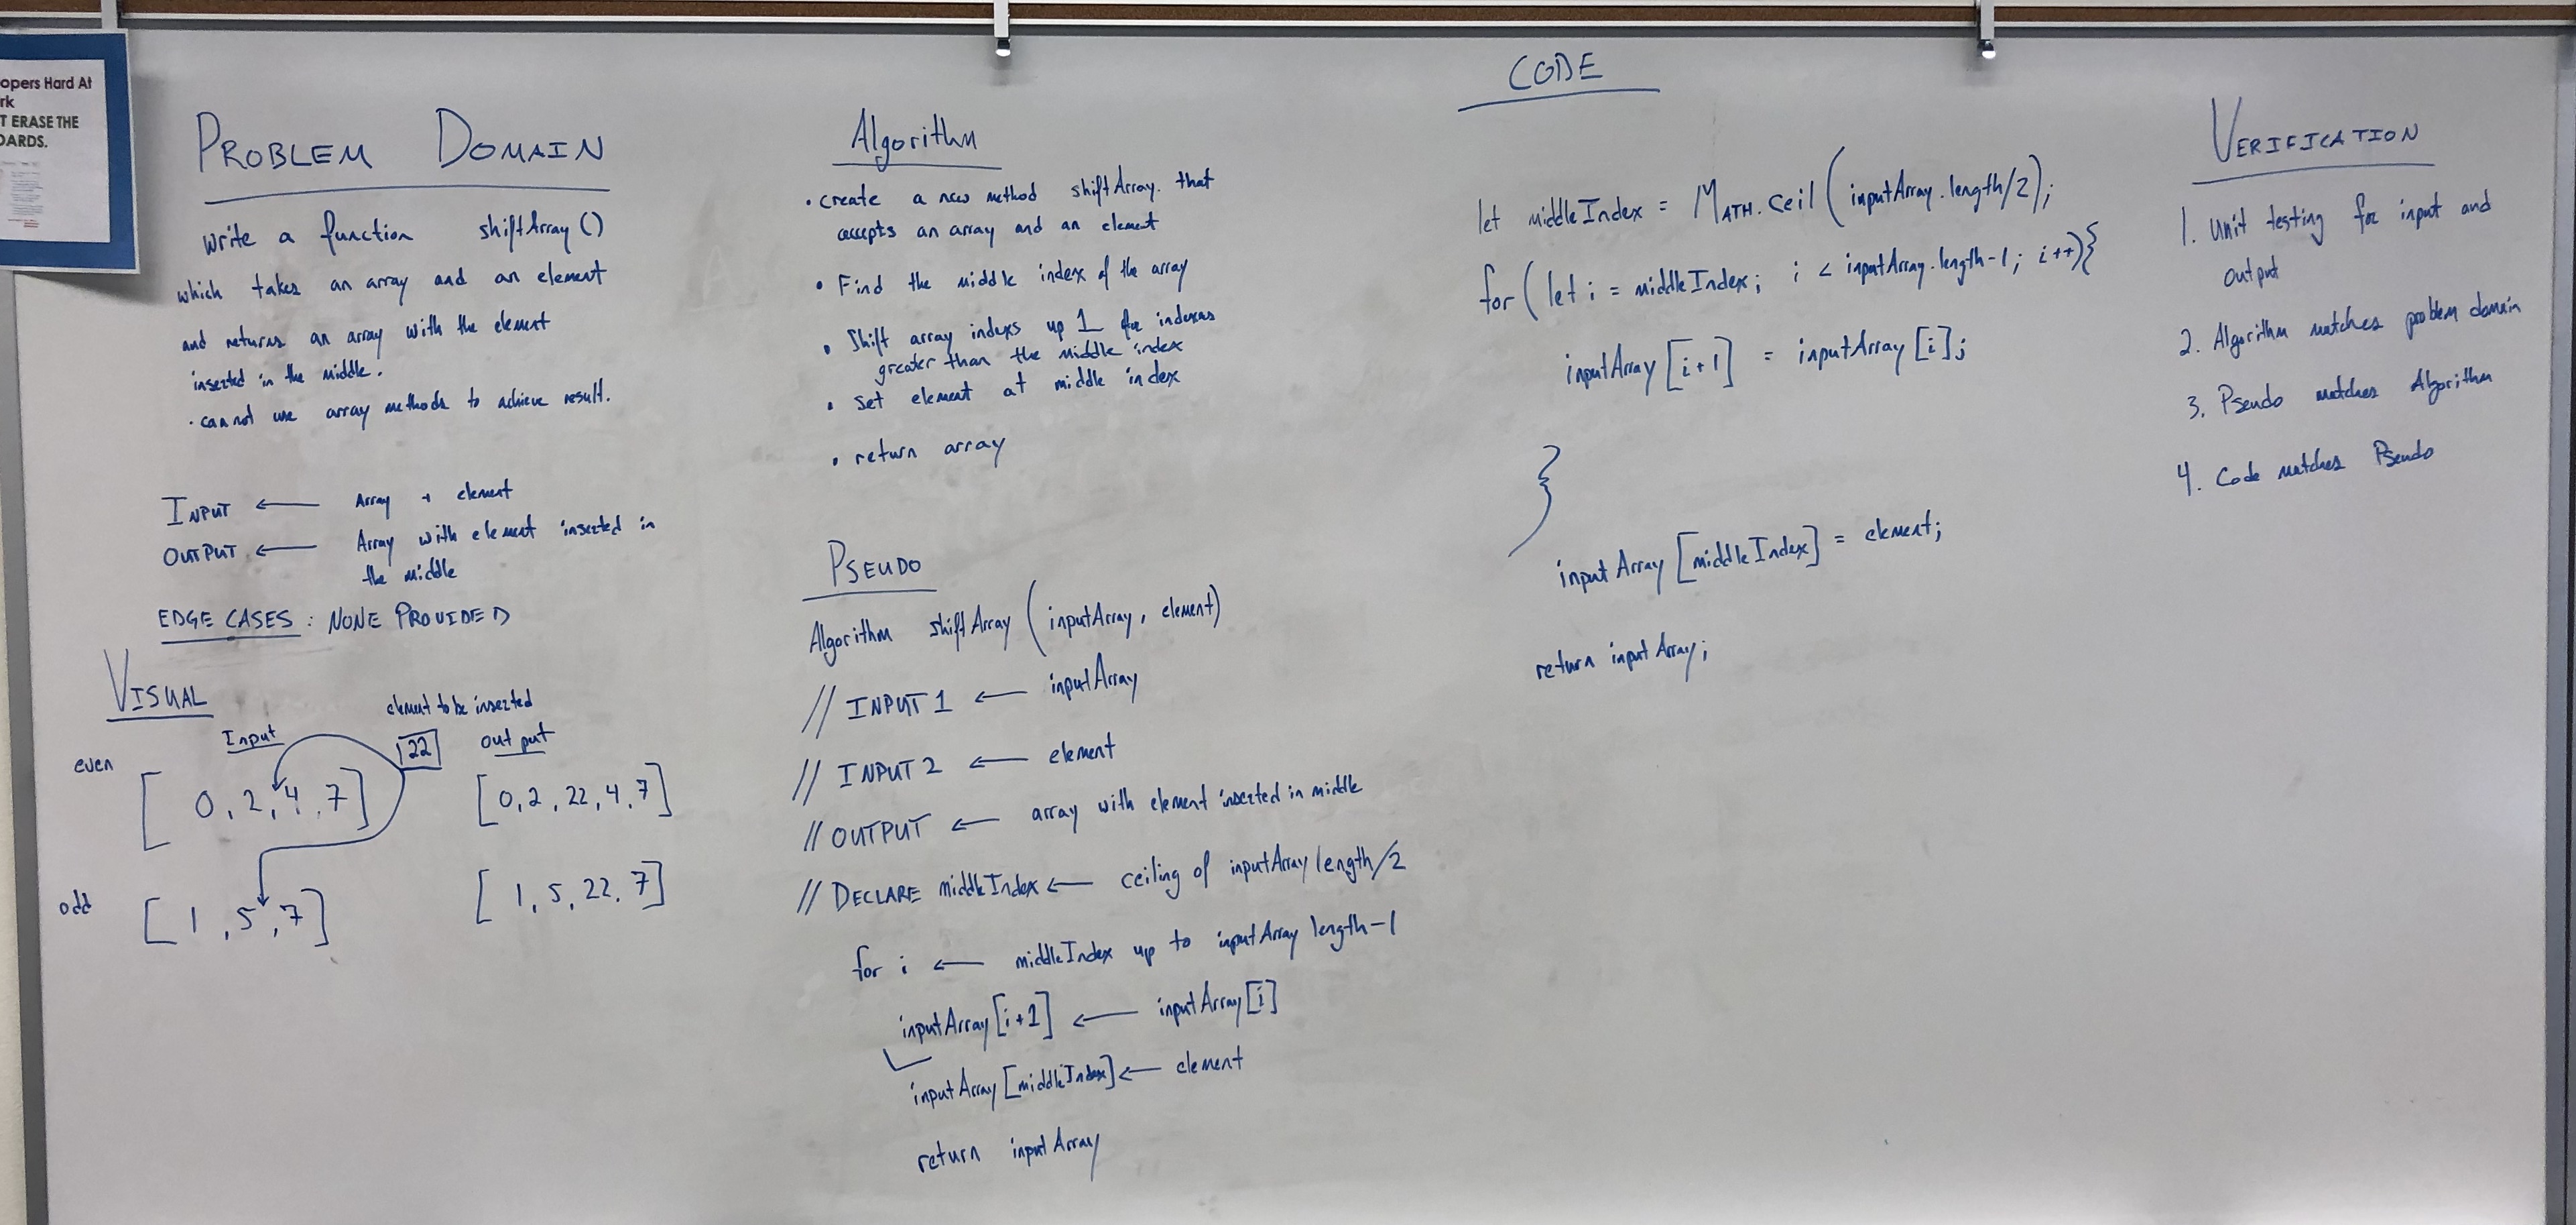 opers Hard At
rk
T ERASE THE
OARDS.
PROBLEM DOMAIN
Write a function shiftArray()
which takes an array and an element
and returns an array with the element
inserted in the middle.
· cannot use array methods to achieve result.
INPUT ← Array + element
OUTPUT ← Array with element inserted in
the middle
EDGE CASES : NONE PROVIDED
VISUAL
element to be inserted
Input
22
output
even
[ 0, 2, 4, 7 ]
[ 0, 2, 22, 4, 7 ]
odd
[ 1, 5, 7 ]
[ 1, 5, 22, 7 ]
Algorithm
· create a new method shiftArray. that
accepts an array and an element
· Find the middle index of the array
· Shift array indexs up 1 for indexes
greater than the middle index
· Set element at middle index
· return array
PSEUDO
Algorithm shiftArray (inputArray, element)
// INPUT 1 ← inputArray
// INPUT 2 ← element
// OUTPUT ← array with element inserted in middle
// DECLARE middleIndex ← ceiling of inputArray length/2
for i ← middleIndex up to inputArray length-1
inputArray[i+1] ← inputArray[i]
inputArray[middleIndex] ← element
return inputArray
CODE
let middleIndex = MATH.ceil (inputArray.length/2);
for ( let i = middleIndex; i < inputArray.length-1; i++){
inputArray [i+1] = inputArray [i];
}
inputArray [middleIndex] = element;
return inputArray;
VERIFICATION
1. Unit testing for input and
output
2. Algorithm matches problem domain
3. Pseudo matches Algorithm
4. Code matches Pseudo